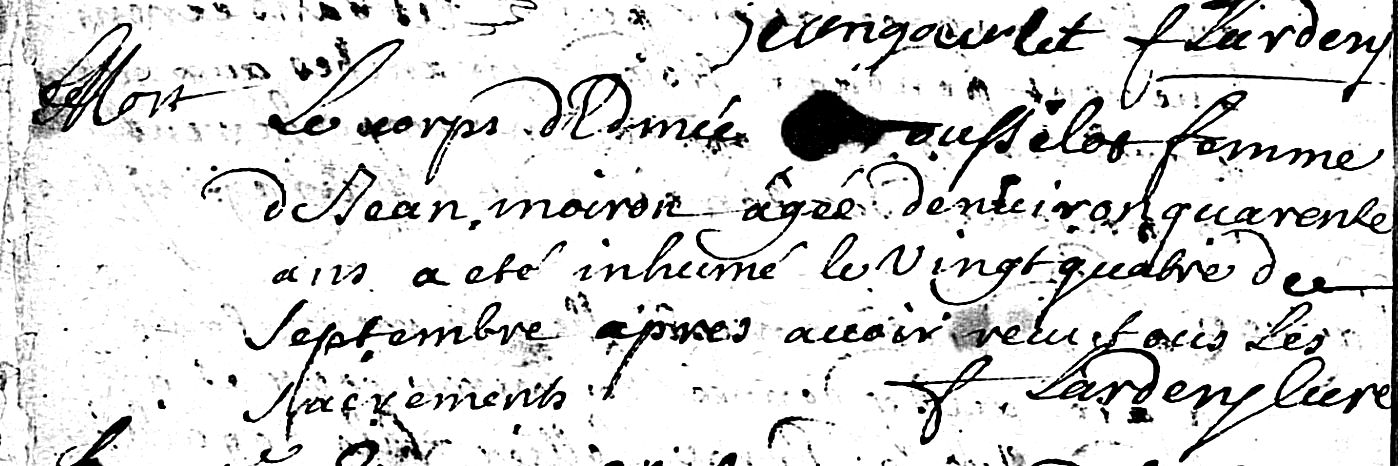 jeangourlet f Lardery
Mort
Le corps dEdmée ousselot femme
de Jean moiron âgée denuiron quarente
ans a eté inhumé le Vingt quatre de
Septembre apres auoir recu tous Les
Sacrements f Lardery Cure